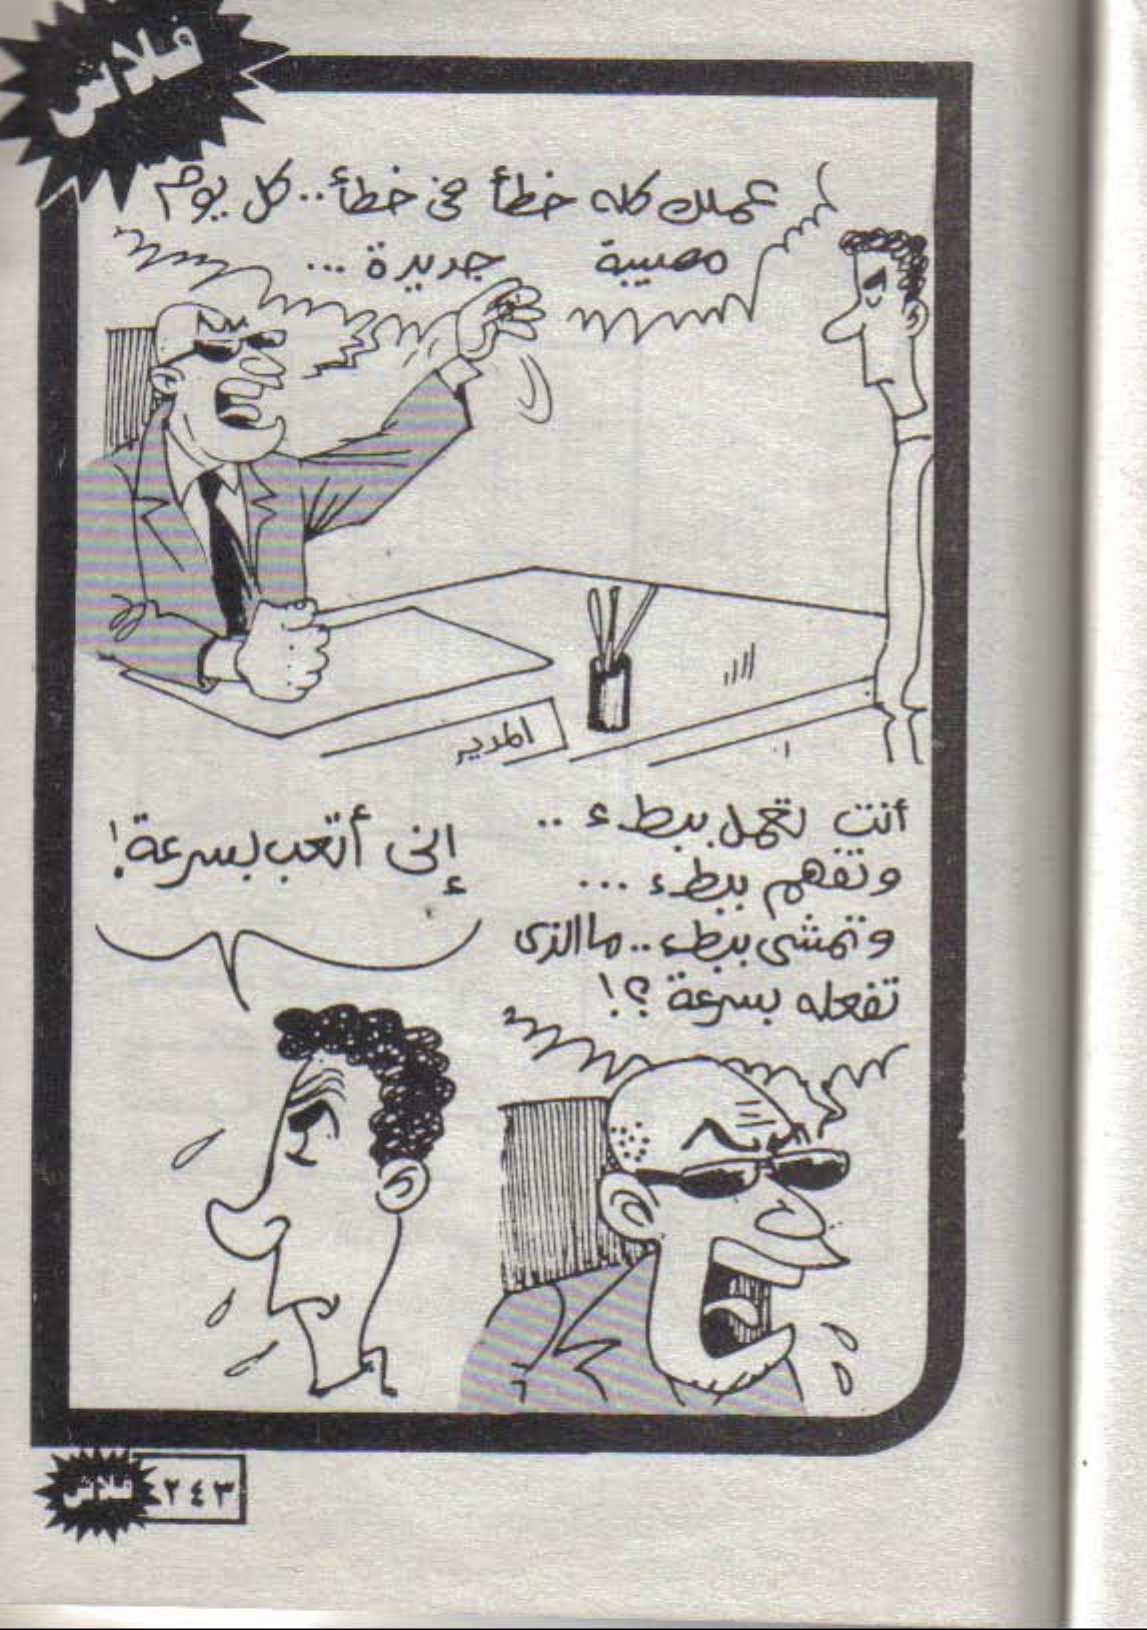 فلاش
عملك كله خطأ في خطأ.. كل يوم
مصيبة جديدة ...
المدير
أنت تعمل ببطء ..
وتفهم ببطء ...
وتمشى ببطء.. ما الذى
تفعله بسرعة ؟!
إنى أتعب بسرعة!
فلاش ٢٤٣